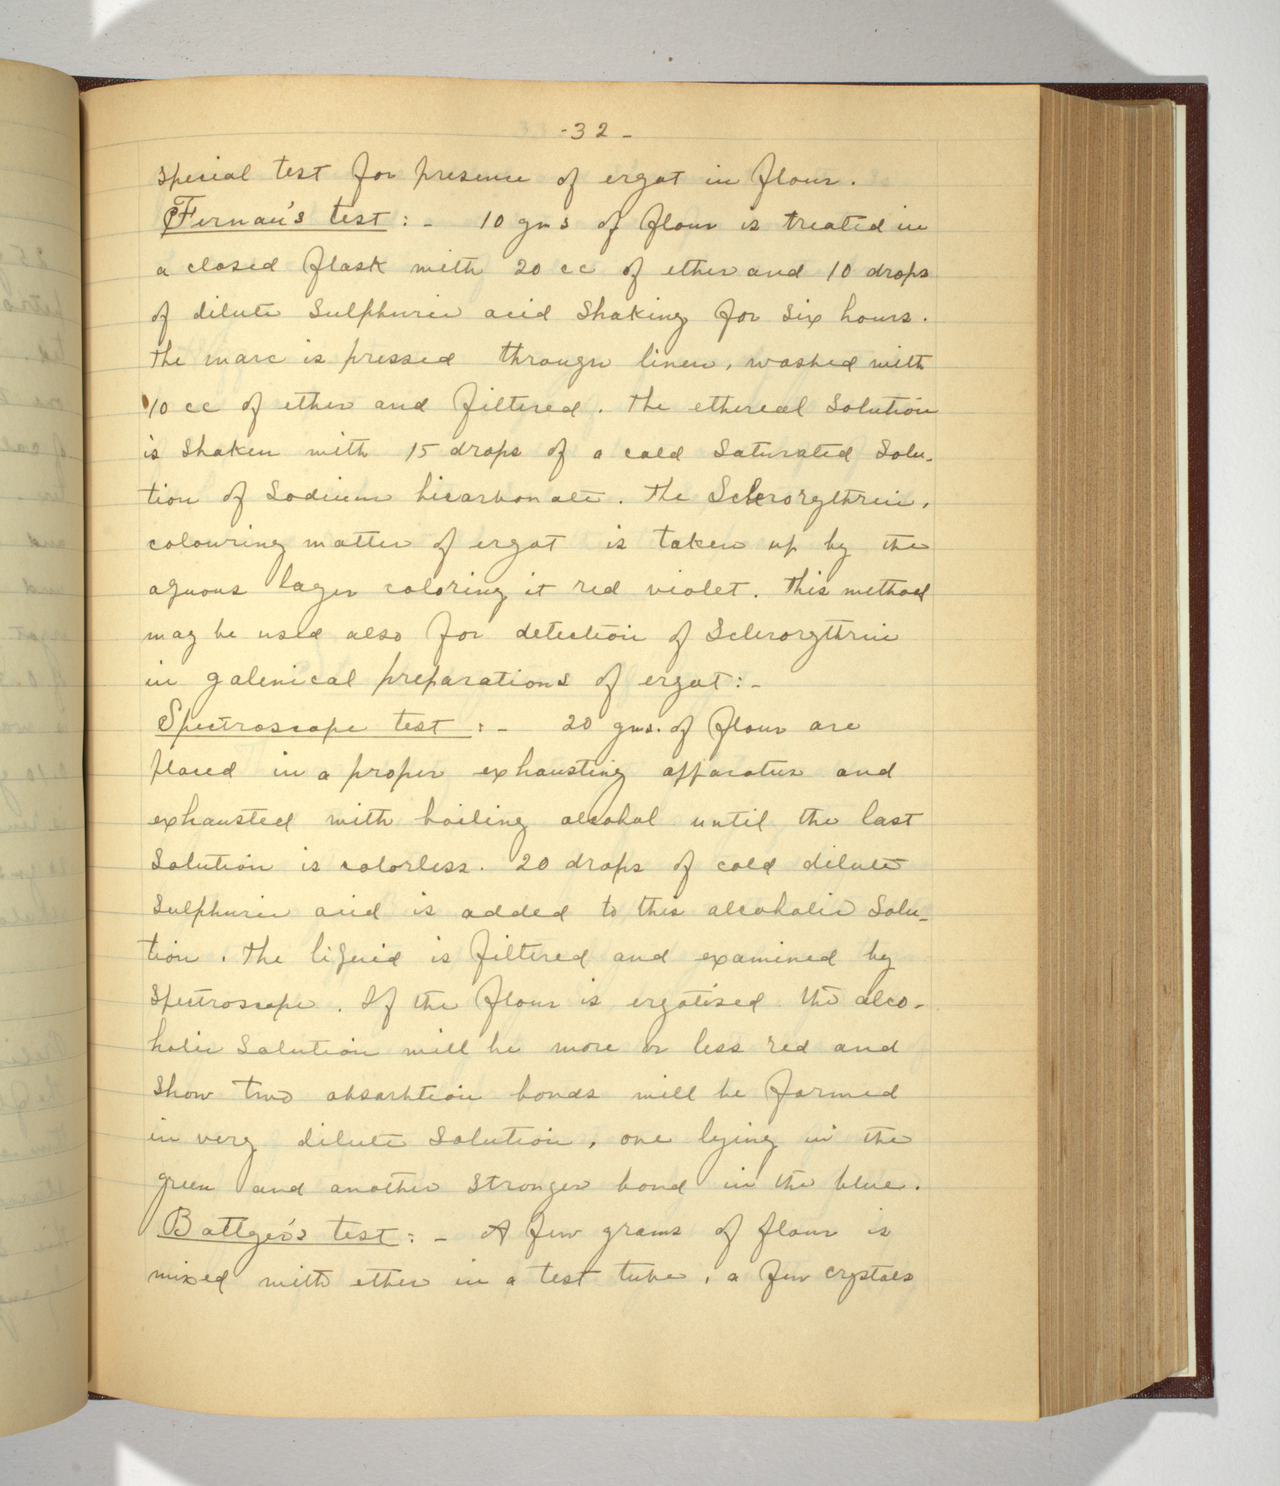 -32-
special test for presence of ergot in flour.
Fernau's test :- 10 gms of flour is treated in
a closed flask with 20 cc of ether and 10 drops
of dilute Sulphuric acid Shaking for Six hours.
the marc is pressed through linen, washed with
10 cc of ether and filtered. the ethereal Solution
is Shaken with 15 drops of a cold Saturated Solu-
tion of Sodium bicarbonate. the Sclerorythrin,
colouring matter of ergot is taken up by the
aquous layer coloring it red violet. this method
may be used also for detection of Sclerorythrin
in galenical preparations of ergot:-
Spectroscope test :- 20 gms. of flour are
placed in a proper exhausting apparatus and
exhausted with boiling alcohol until the last
Solution is colorless. 20 drops of cold dilute
Sulphuric acid is added to this alcoholic Solu-
tion. the liquid is filtered and examined by
Spectroscope. If the flour is ergotised the alco-
holic Solution will be more or less red and
Show two absorbtion bands will be formed
in very dilute Solution, one lying in the
green and another Stronger band in the blue.
Battger's test :- A few grams of flour is
mixed with ether in a test tube, a few crystals